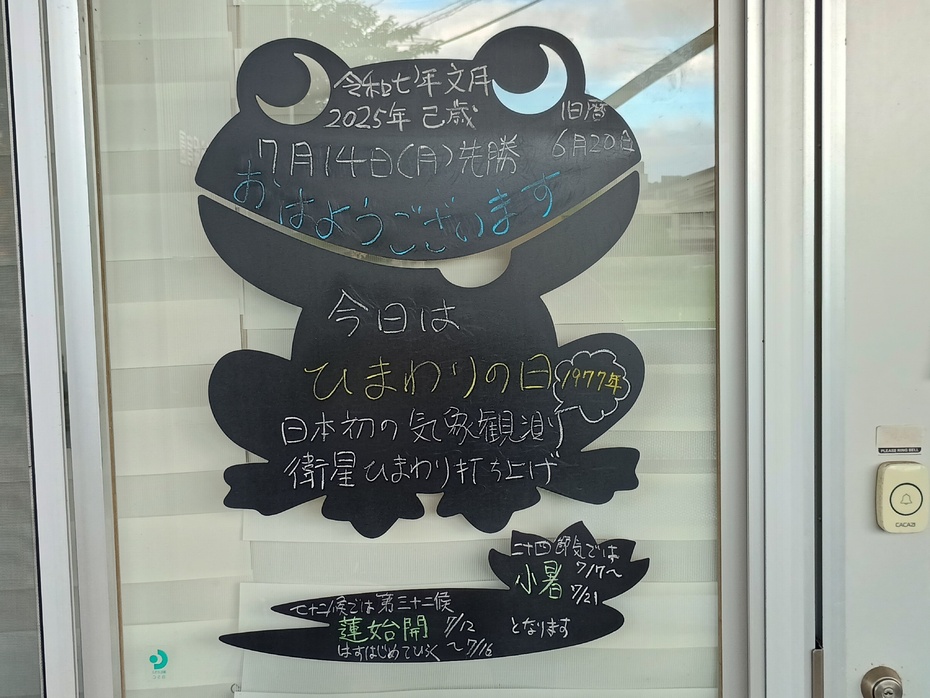 令和七年文月
2025年 己歳
旧暦
6月20日
7月14日(月)先勝
おはようございます
今日は
ひまわりの日
1977年
日本初の気象観測
衛星ひまわり打ち上げ
二十四節気では
小暑 7/7〜
7/21
七十二候では第三十二候
蓮始開 7/12
はすはじめてひらく 〜7/16
となります
PLEASE RING BELL
CACAZI